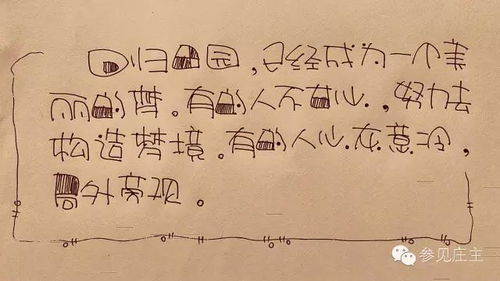 回归田园，已经成为一个美
丽的梦。有的人不甘心，努力去
构造梦境。有的人心灰意冷，
局外旁观。
参见庄主